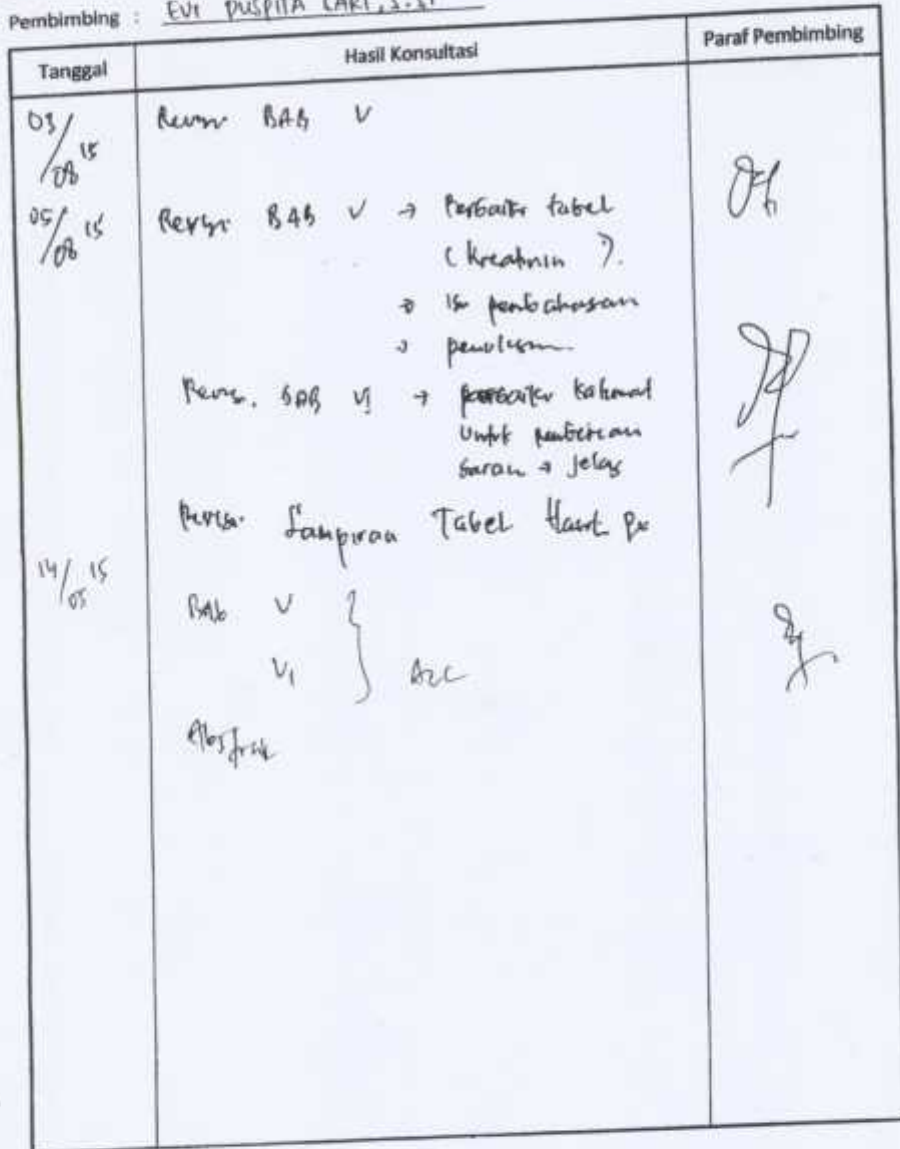 Pembimbing : EVI PUSPITA SARI, S.ST
Tanggal Hasil Konsultasi Paraf Pembimbing
03/08 15 Revisi BAB V
05/08 15 Revisi BAB V → Perbaiki tabel
(Kreatinin).
→ Isi pembahasan
→ penulisan
Revisi BAB VI → perbaiki kalimat
untuk pemberian
saran → jelas
Revisi Lampiran Tabel Hasil Px
14/05 15
BAb V
VI } Acc
Abstrak